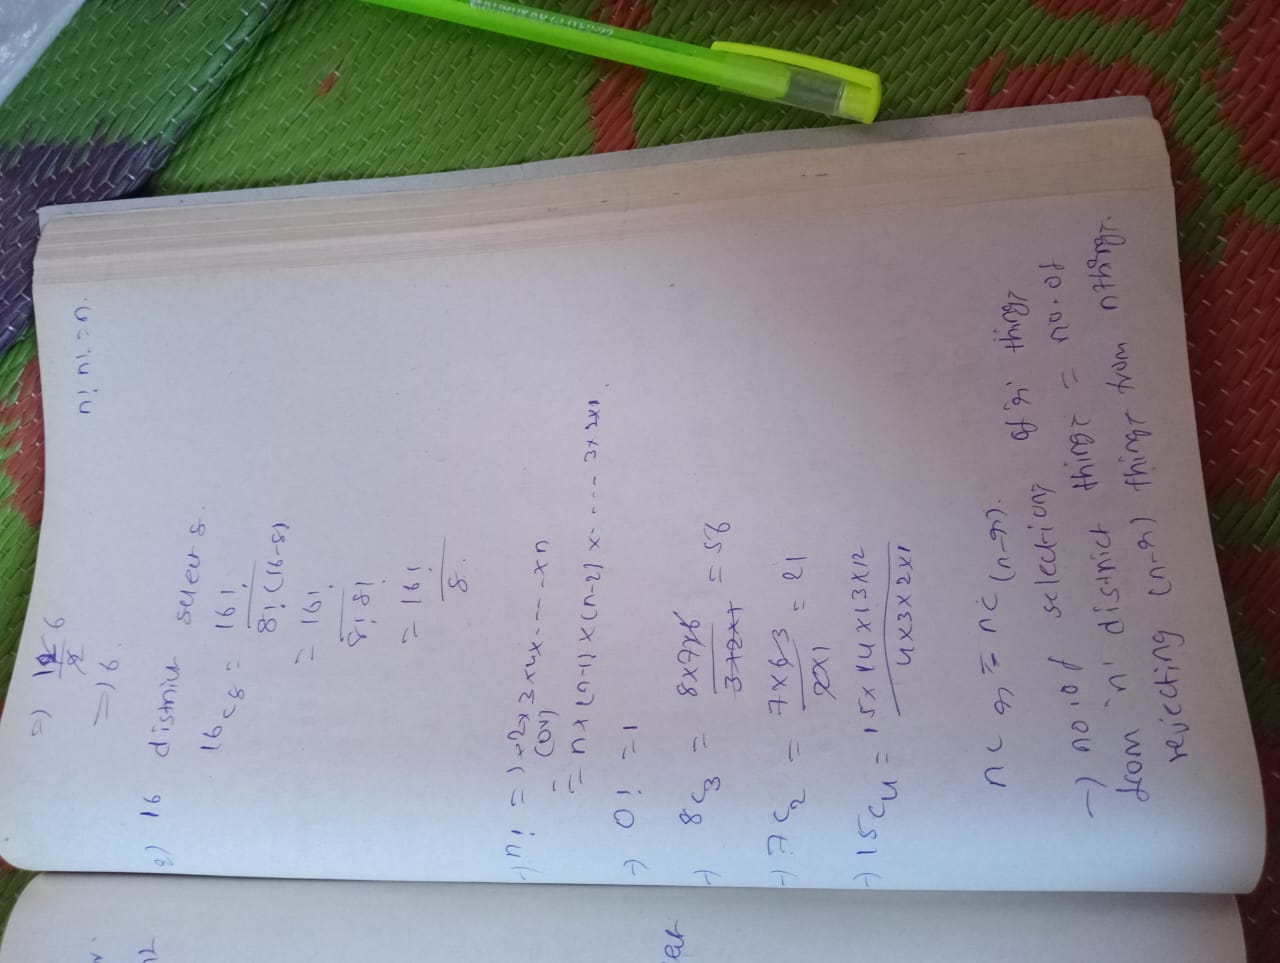 =) 12 6
2
=) 6.
n! n! = n.
2) 16 distinct select 8.
16c8 = 16!
8! (16-8)
= 16!
8! 8!
= 16!
8.
→ n! = 1×2×3×4×----×n
(or)
= n×(n-1)×(n-2)×----3×2×1.
→ 0! = 1
→ 8c3 = 8×7×6 = 56
3×2×1
→ 7c2 = 7×6 3 = 21
2×1
→ 15c4 = 15×14×13×12
4×3×2×1
nc r = nc (n-r).
→ no.of selections of 'r' things
from 'n' distinct things = no.of
rejecting (n-r) things from n things.